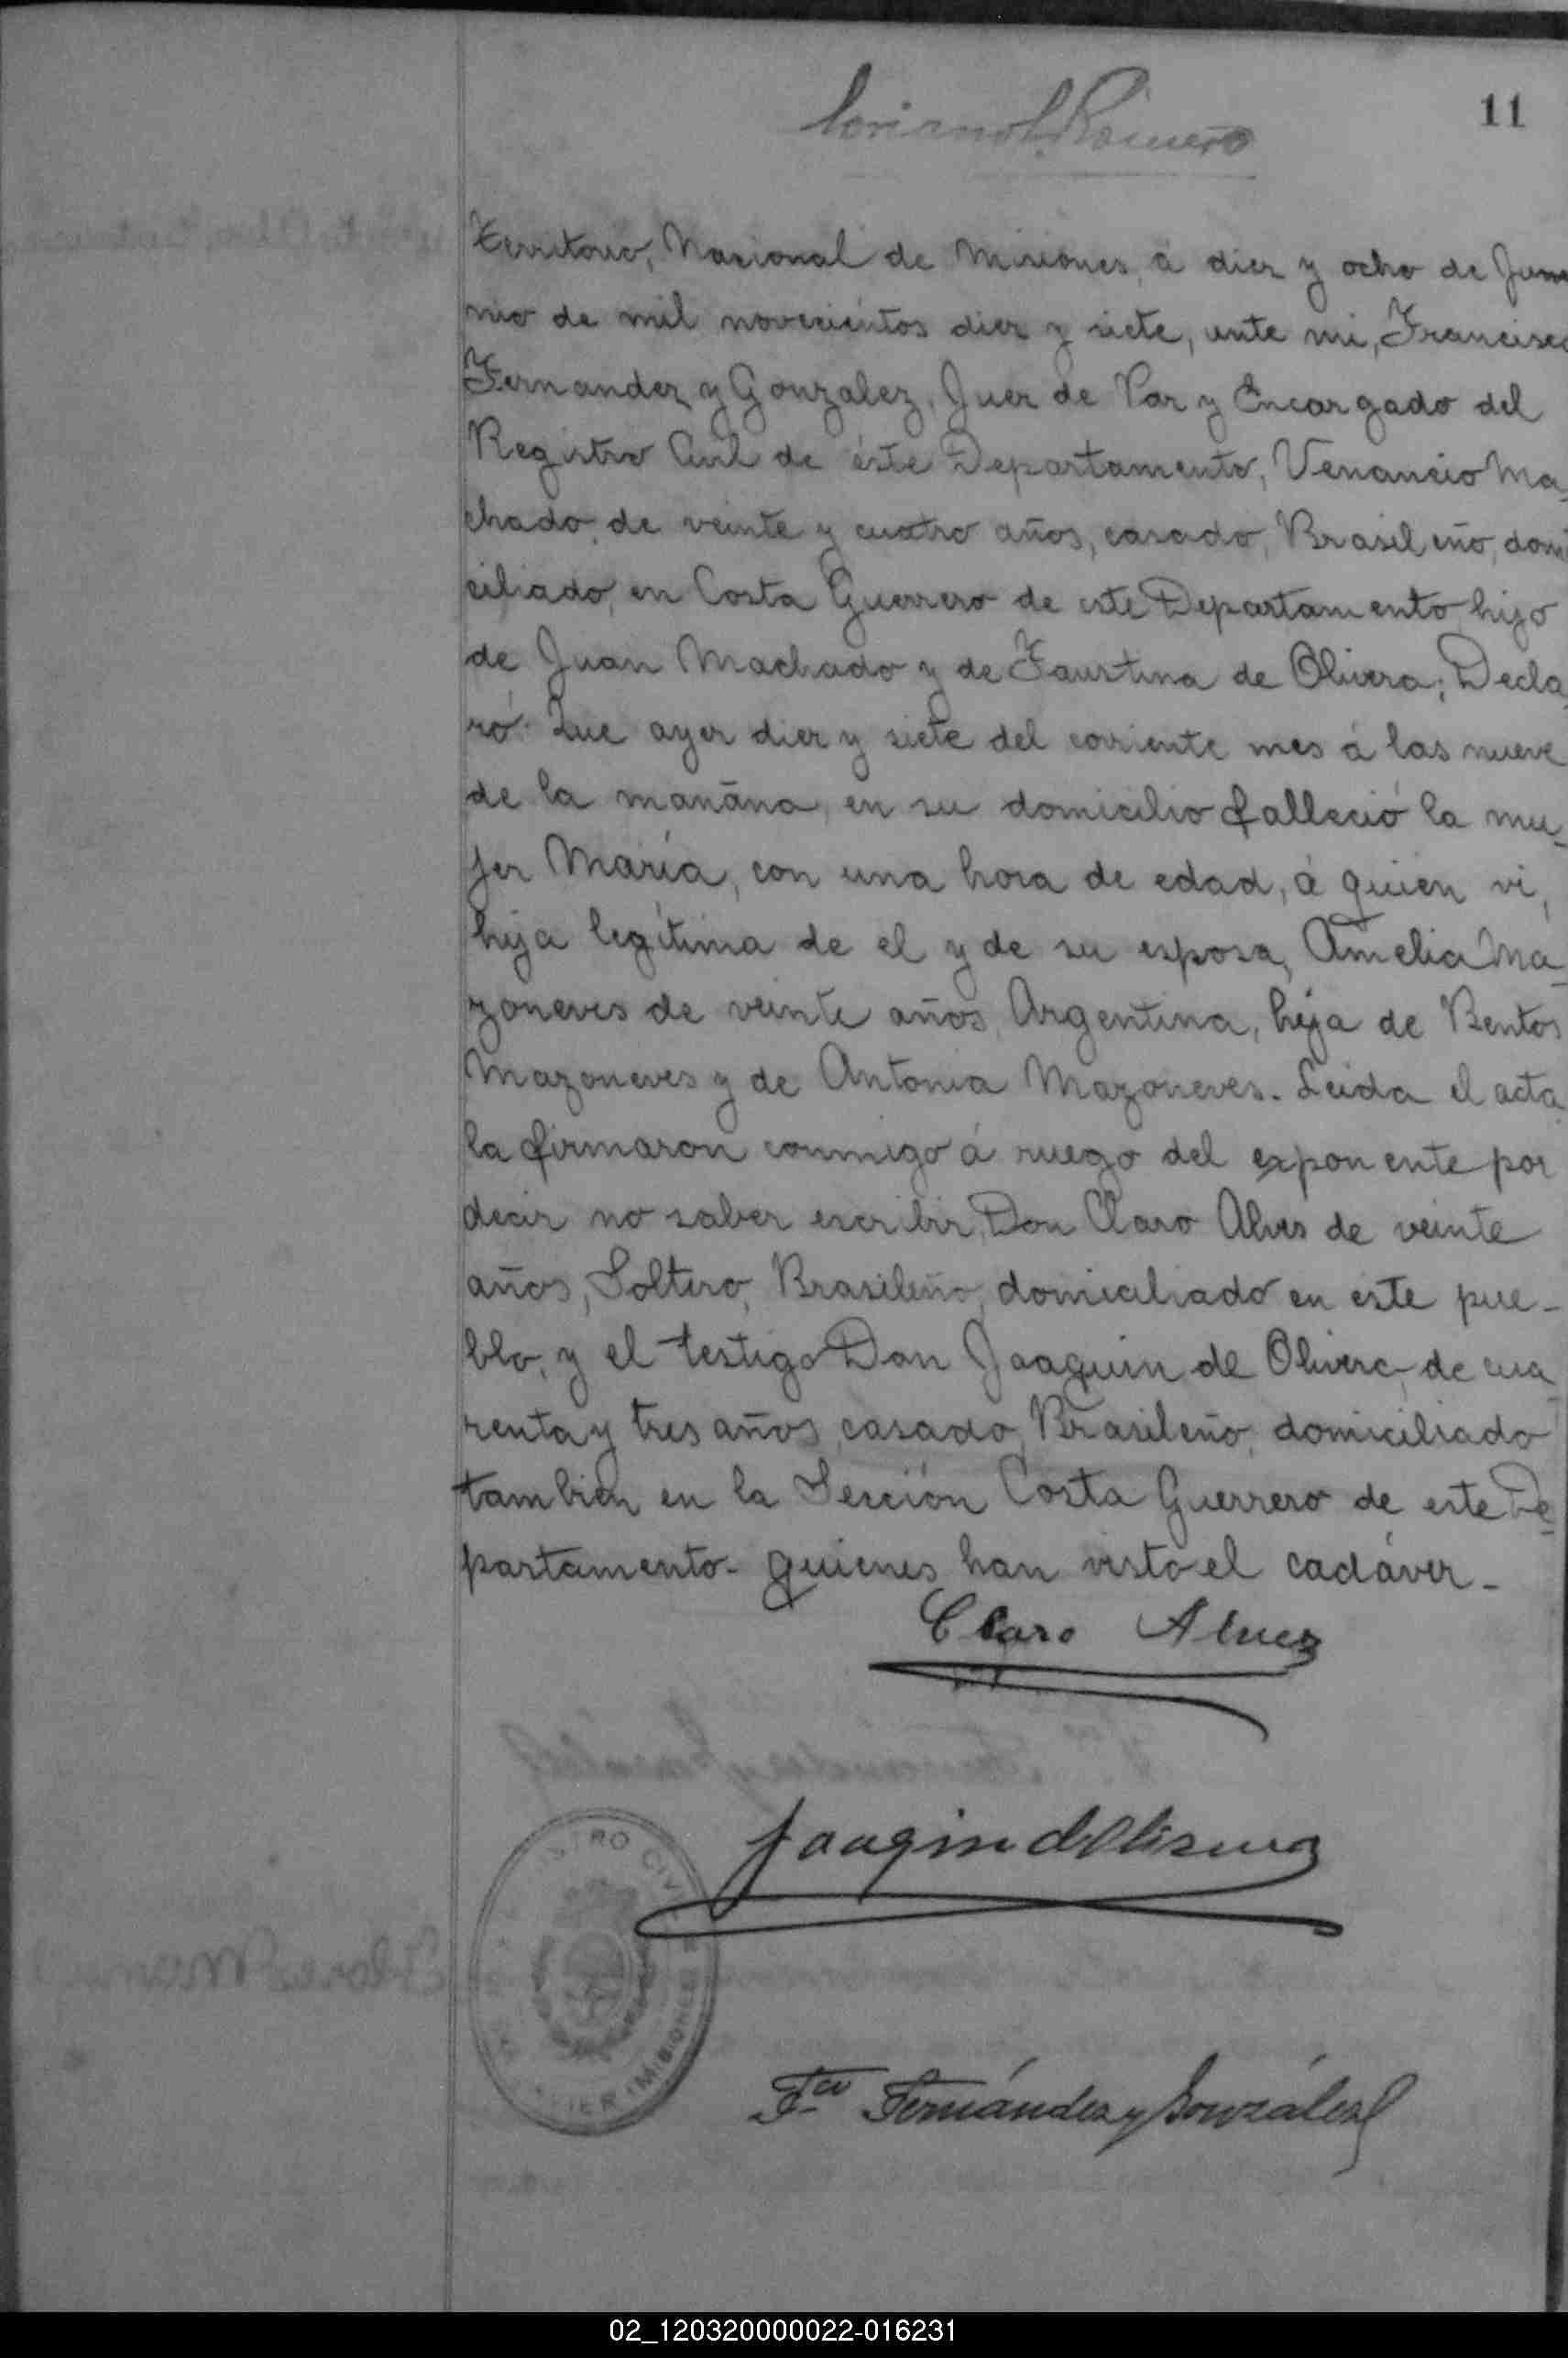 11
Territorio, Nacional de Misiones, á diez y ocho de Jun
nio de mil novecientos diez y siete, ante mi, Francisco
Fernandez y Gonzalez, Juez de Paz y Encargado del
Registro Civil de éste Departamento, Venancio Ma_
chado, de veinte y cuatro años, casado, Brasileño, domi
ciliado, en Costa Guerrero de este Departamento, hijo
de Juan Machado y de Faustina de Olivera; Decla_
ró: Que ayer diez y siete del corriente mes á las nueve
de la mañana, en su domicilio falleció la mu_
jer María, con una hora de edad, á quien vi,
hija legítima de el y de su esposa, Amelia Ma_
zoneves de veinte años, Argentina, hija de Bentos
Mazoneves y de Antonia Mazoneves. Leida el acta
la firmaron conmigo á ruego del exponente por
decir no saber escribir, Don Claro Alves de veinte
años, Soltero, Brasileño, domiciliado en este pue-
blo, y el testigo Don Joaquin de Olivera, de cua_
renta y tres años, casado, Brasileño, domiciliado
tambien en la Sección Costa Guerrero de este De_
partamento- quienes han visto el cadáver-
Claro Alvez
Fco Fernández y González
REGISTRO CIVIL
JAVIER (MISIONES)
02_120320000022-016231